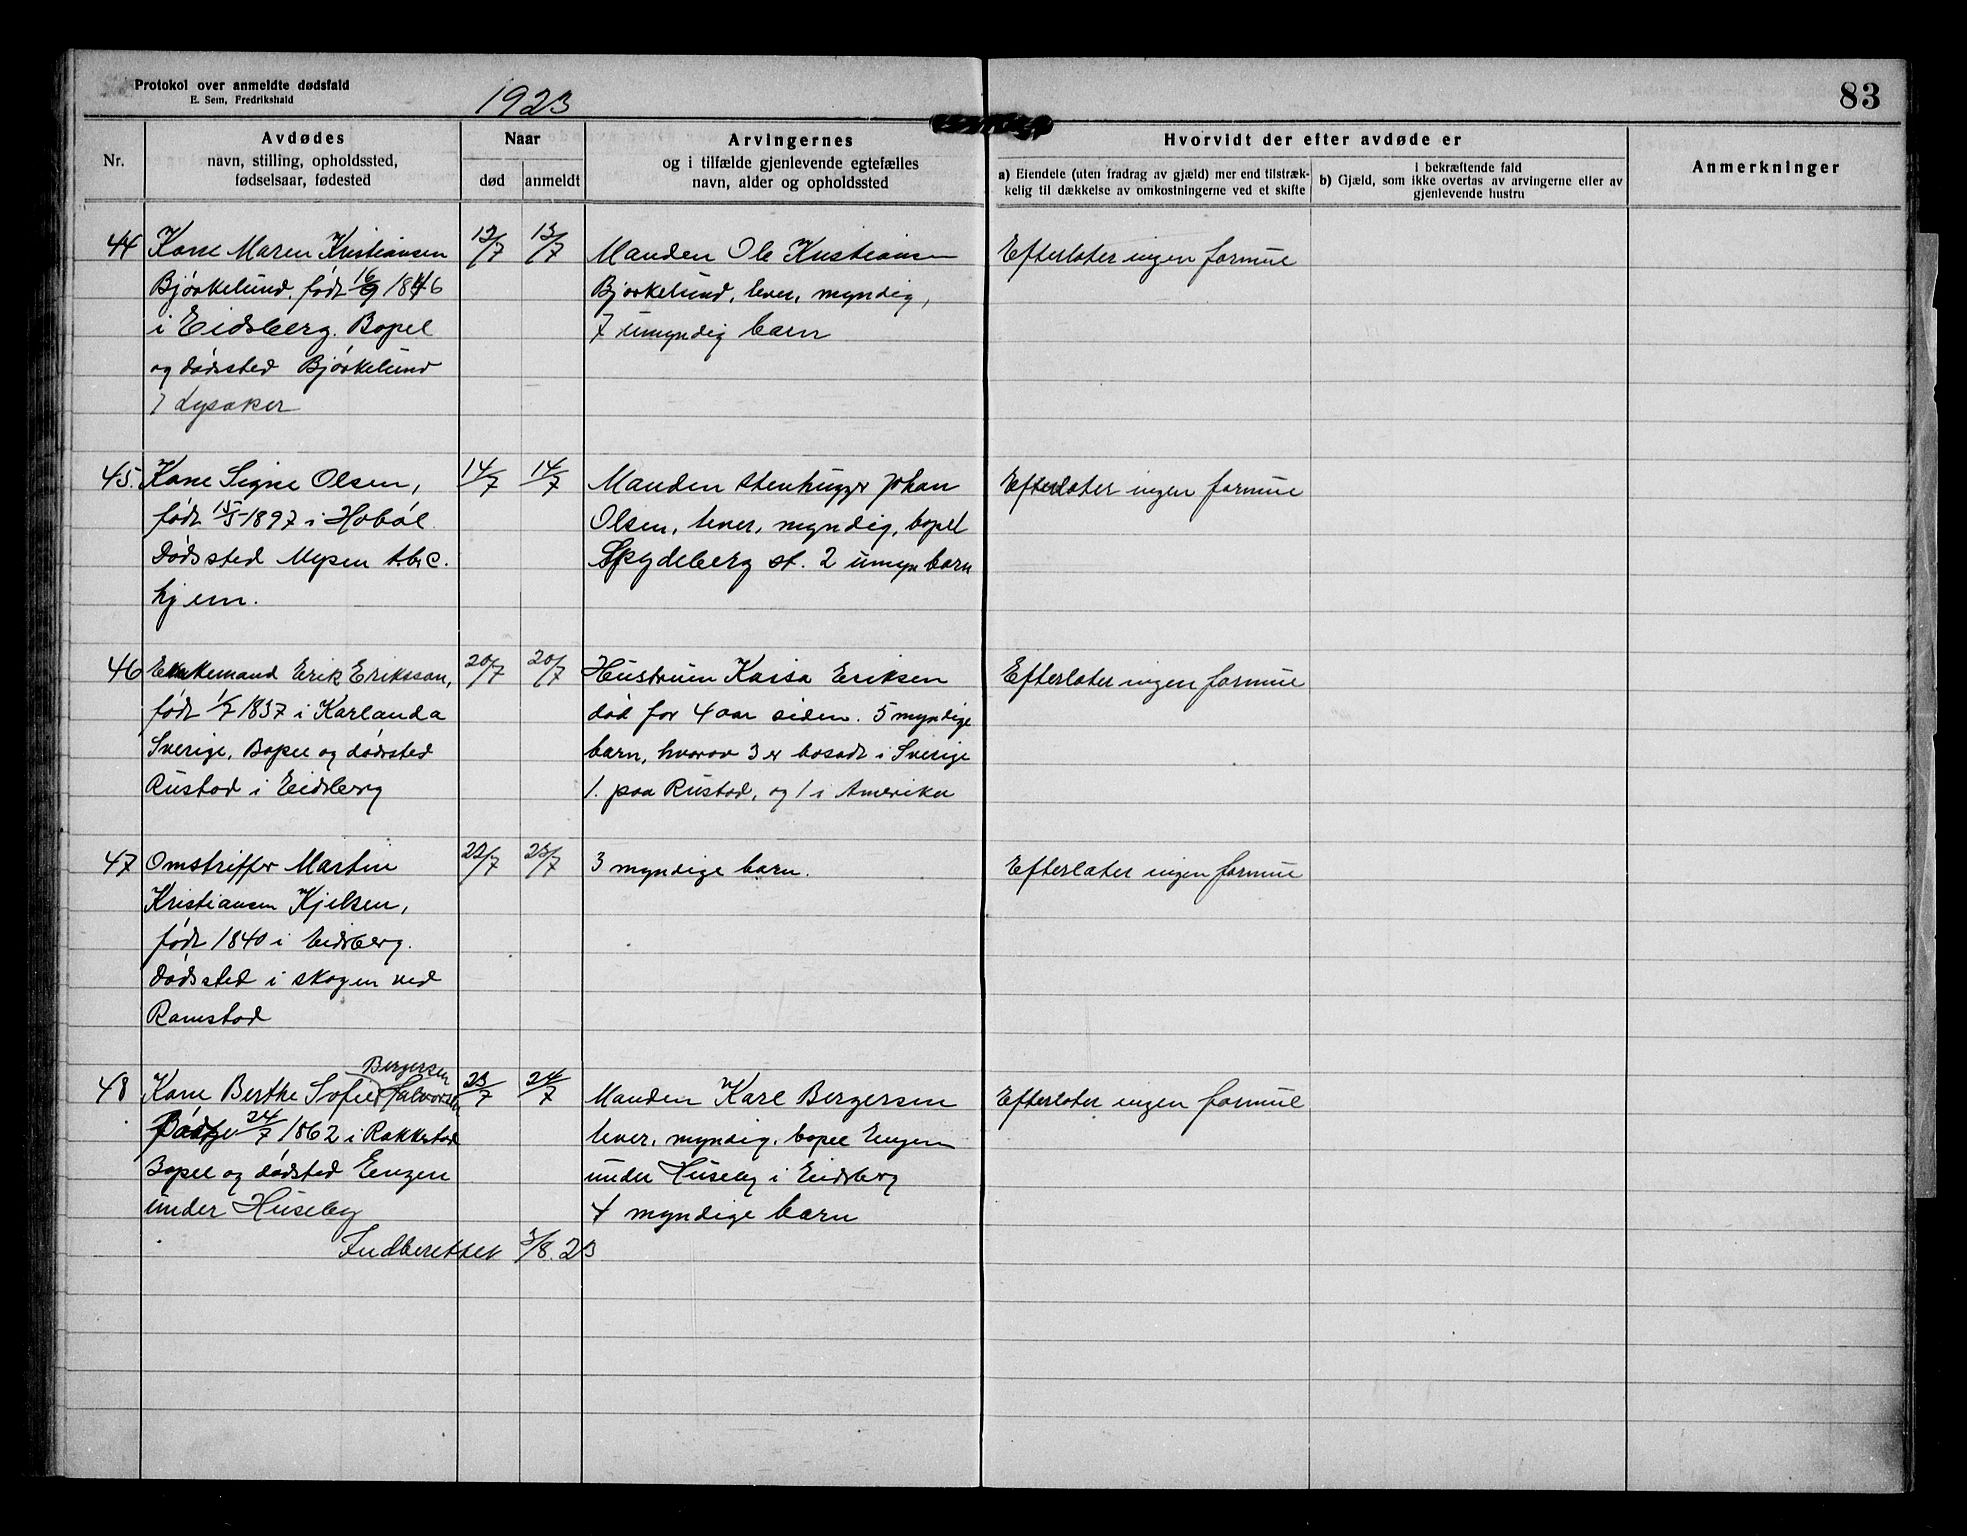 Protokol over anmeldte dødsfald
E. Sem, Fredrikshald
1923
83
Nr.
Avdødes
navn, stilling, opholdssted,
fødselsaar, fødested
Naar
død anmeldt
Arvingernes
og i tilfælde gjenlevende egtefælles
navn, alder og opholdssted
Hvorvidt der efter avdøde er
a) Eiendele (uten fradrag av gjæld) mer end tilstræk-
kelig til dækkelse av omkostningerne ved et skifte
i bekræftende fald
b) Gjæld, som ikke overtas av arvingerne eller av
gjenlevende hustru
Anmerkninger
44 Kone Maren Kristiansen 12/7 13/7 Manden Ole Kristiansen Efterlater ingen formue
Bjørkelund, født 16/9 1846 Bjørkelund, lever, myndig,
i Eidsberg. Bopel 7 umyndig barn
og dødssted Bjørkelund
Lysaker
45. Kone Signe Olsen, 14/7 14/7 Manden stenhugger Johan Efterlater ingen formue
født 15/5 1897 i Hobøl. Olsen, lever, myndig, bopel
Dødssted Mysen tbc. Spydeberg st. 2 umyn barn
hjem.
46 Enkemand Erik Eriksson, 20/7 20/7 Hustruen Kaisa Eriksen Efterlater ingen formue
født 1/7 1837 i Karlanda død for 4 aar siden. 5 myndige
Sverige, Bopel og dødssted barn, hvorav 3 er bosadt i Sverige
Rustad i Eidsberg 1. paa Rustad, og 1 i Amerika
47 Omstriffer Martin 22/7 23/7 3 myndige barn. Efterlater ingen formue
Kristiansen Kjelsen,
født 1840 i Eidsberg.
Dødssted i skogen ved
Ramstad
Bergersen
48 Kone Berthe Sofie Halvorsen 23/7 24/7 Manden Karl Bergersen Efterlater ingen formue
24/7 1862 i Rakkestad lever, myndig, bopel Engen
Bopel og dødsted Engen under Huseby i Eidsberg
under Huseby 4 myndige barn
Indberettet 3/8. 23